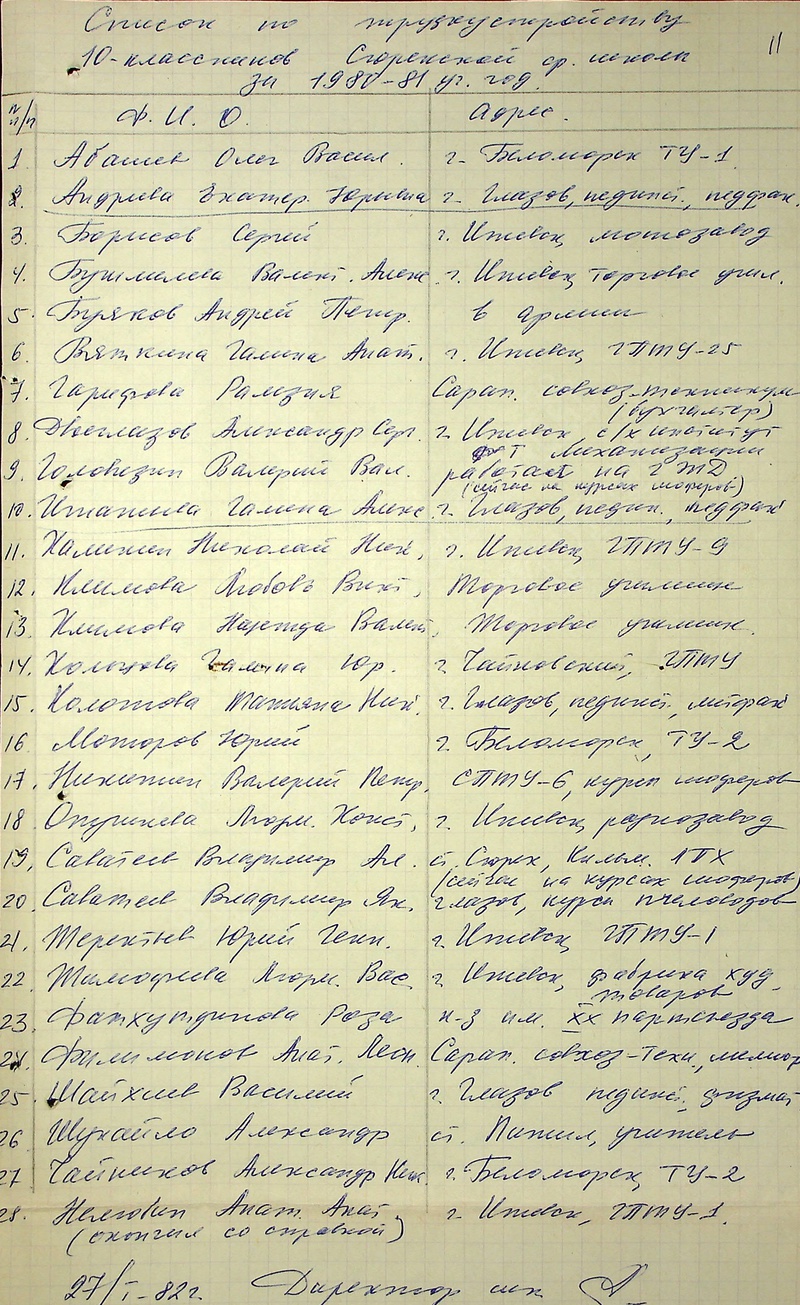 Список по трудоустройству
11
10-классников Сюрекской ср. школы
за 1980-81 уч. год.
№ п/п Ф. И. О. Адрес.
1 Абашев Олег Васил. г. Беломорск ТУ-1
2. Андреева Екатер. Юрьевна г. Глазов, пединст., педфак.
3. Борисов Сергей г. Ижевск, мотозавод
4. Бушмелева Валент. Алекс. г. Ижевск, торговое учил.
5. Буяков Андрей Петр. в армии
6. Вяткина Галина Анат. г. Ижевск, ГПТУ-25
7. Гарифова Рамзия Сарап. совхоз-техникум
(бухгалтер)
8. Двоеглазов Александр Серг. г. Ижевск с/х институт
фт механизации
9. Головизин Валерий Вал. работает на ГЖД
(сейчас на курсах шоферов)
10. Игнатьева Галина Алекс. г. Глазов, педин., педфак
11. Калинин Николай Ник. г. Ижевск, ГПТУ-9
12. Климова Любовь Викт. Торговое училище
13. Климова Надежда Валент. Торговое училищ.
14. Галина Юр. г. Чайковский, ГПТУ
15. Колотова Татьяна Ник. г. Глазов, пединст., литфак
16 Моторов Юрий г. Беломорск, ТУ-2
17. Никитин Валерий Петр. СПТУ-6, курсы шоферов
18 Людм. Конст. г. Ижевск, радиозавод
19. Саватеев Владимир Ал. ст. Сюрек, Кильм. ЛПХ
(сейчас на курсах шоферов)
20. Саватеев Владимир Як. Глазов, курсы пчеловодов
21. Терентьев Юрий Генн. г. Ижевск, ГПТУ-1
22 Тимофеева Людм. Вас. г. Ижевск, фабрика худ.
товаров
23 Фатхутдинова Роза к-з им. XX партсъезда
24. Филимонов Анат. Леон. Сарап. совхоз-техн., мелиор
25. Шайхиев Василий г. Глазов пединст., физмат
26 Шукайло Александр ст. Пижил, учитель
27 Чайников Александр Ник. г. Беломорск, ТУ-2
28. Анат. Анат. г. Ижевск, ГПТУ-1.
(окончил со справкой)
27/I-82г. Директор шк